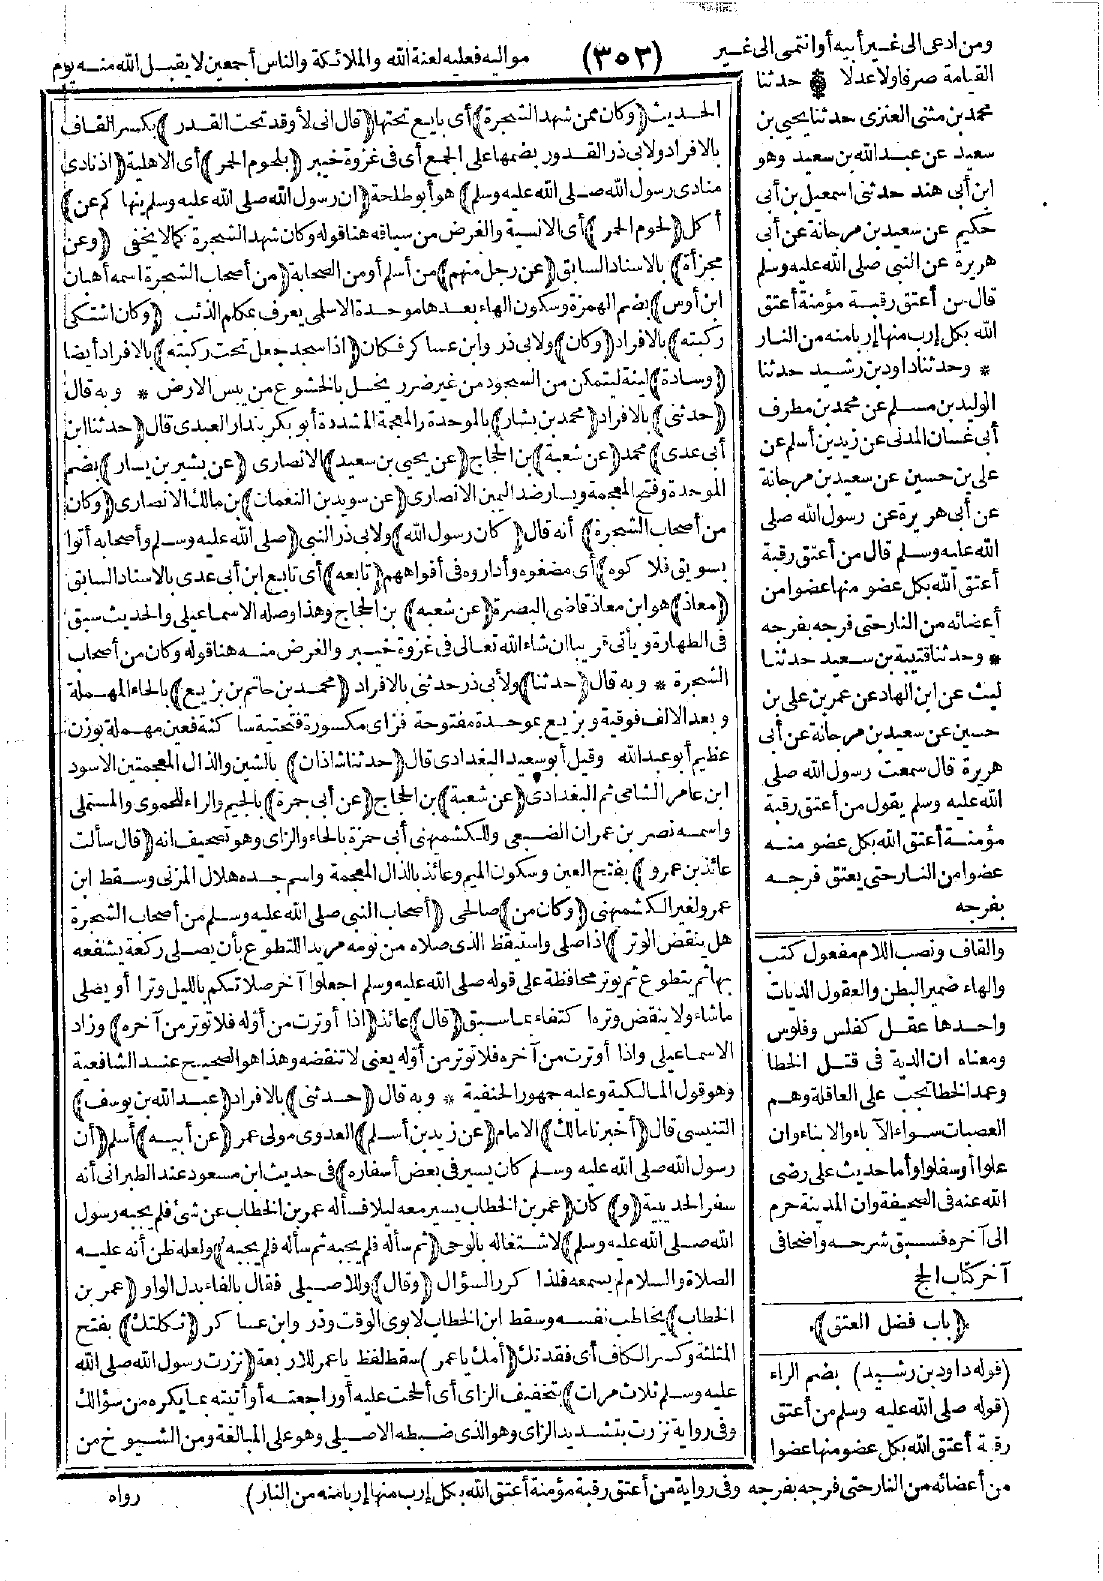 ومن ادعى الى غير أبيه أو انتمى الى غير
(٣٥٣)
مواليه فعليه لعنة الله والملائكة والناس أجمعين لا يقبل الله منه يوم
القيامة صرفا ولا عدلا * حدثنا
محمد بن مثنى العنزى حدثنا يحيى بن
سعيد عن عبد الله بن سعيد وهو
ابن أبى هند حدثنى اسمعيل بن أبى
حكيم عن سعيد بن مرجانة عن أبى
هريرة عن النبى صلى الله عليه وسلم
قال من أعتق رقبة مؤمنة أعتق
الله بكل إرب منها إربا منه من النار
* وحدثنا داود بن رشيد حدثنا
الوليد بن مسلم عن محمد بن مطرف
أبى غسان المدنى عن زيد بن أسلم عن
على بن حسين عن سعيد بن مرجانة
عن أبى هريرة عن رسول الله صلى
الله عليه وسلم قال من أعتق رقبة
أعتق الله بكل عضو منها عضوا من
أعضائه من النار حتى فرجه بفرجه
* وحدثنا قتيبة بن سعيد حدثنا
ليث عن ابن الهاد عن عمر بن على بن
حسين عن سعيد بن مرجانة عن أبى
هريرة قال سمعت رسول الله صلى
الله عليه وسلم يقول من أعتق رقبة
مؤمنة أعتق الله بكل عضو منه
عضوا من النار حتى يعتق فرجه
بفرجه
والقاف ونصب اللام مفعول كتب
والهاء ضمير البطن والعقول الديات
واحدها عقل كفلس وفلوس
ومعناه ان الدية فى قتل الخطا
وعمد الخطا تجب على العاقلة وهم
العصبات سواء الآباء والابناء وان
علوا أو سفلوا وأما حديث على رضى
الله عنه فى الصحيفة وان المدينة حرم
الى آخره فسبق شرحه واضحا فى
آخر كتاب الحج
(باب فضل العتق)
(قوله داود بن رشيد) بضم الراء
(قوله صلى الله عليه وسلم من أعتق
رقبة أعتق الله بكل عضو منها عضوا
من أعضائه من النار حتى فرجه بفرجه وفى رواية من أعتق رقبة مؤمنة أعتق الله بكل إرب منها إربا منه من النار)
رواه
الحديث (وكان ممن شهد الشجرة) أى بايع تحتها (قال انى لأوقد تحت القدر) بكسر القاف
بالافراد ولابى ذر القدور بضمها على الجمع أى فى غزوة خيبر (بلحوم الحمر) أى الاهلية (اذ نادى
منادى رسول الله صلى الله عليه وسلم) هو أبو طلحة (ان رسول الله صلى الله عليه وسلم ينهاكم عن)
أكل (لحوم الحمر) أى الانسية والغرض من سياقه هنا قوله وكان شهد الشجرة كما لا يخفى (وعن
مجزأة) بالاسناد السابق (عن رجل منهم) من أسلم أو من الصحابة (من أصحاب الشجرة اسمه أهبان
ابن أوس) بضم الهمزة وسكون الهاء بعدها موحدة الاسلمى يعرف بمكلم الذئب (وكان اشتكى
ركبته) بالافراد (وكان) ولابى ذر وابن عساكر فكان (اذا سجد جعل تحت ركبته) بالافراد أيضا
(وسادة) لينة ليتمكن من السجود من غير ضرر يخل بالخشوع من يبس الارض * وبه قال
(حدثنى) بالافراد (محمد بن بشار) بالموحدة والمعجمة المشددة أبو بكر بندار العبدى قال (حدثنا ابن
أبى عدى) محمد (عن شعبة) بن الحجاج (عن يحيى بن سعيد) الانصارى (عن بشير بن يسار) بضم
الموحدة وفتح المعجمة ويسار ضد اليمين الانصارى (عن سويد بن النعمان) بن مالك الانصارى (وكان
من أصحاب الشجرة) أنه قال (كان رسول الله) ولابى ذر النبى (صلى الله عليه وسلم وأصحابه أتوا
بسويق فلاكوه) أى مضغوه وأداروه فى أفواههم (تابعه) أى تابع ابن أبى عدى بالاسناد السابق
(معاذ) هو ابن معاذ قاضى البصرة (عن شعبه) بن الحجاج وهذا وصله الاسماعيلى والحديث سبق
فى الطهارة ويأتى قريبا ان شاء الله تعالى فى غزوة خيبر والغرض منه هنا قوله وكان من أصحاب
الشجرة * وبه قال (حدثنا) ولأبى ذر حدثنى بالافراد (محمد بن حاتم بن بزيع) بالحاء المهملة
وبعد الالف فوقية وبزيع بموحدة مفتوحة فزاى مكسورة فتحتية ساكنة فعين مهملة بوزن
عظيم أبو عبد الله وقيل أبو سعيد البغدادى قال (حدثنا شاذان) بالشين والذال المعجمتين الاسود
ابن عامر الشامى ثم البغدادى (عن شعبة) بن الحجاج (عن أبى جمرة) بالجيم والراء للحموى والمستملى
واسمه نصر بن عمران الضبعى وللكشميهنى أبى حمزة بالحاء والزاى وهو تصحيف انه (قال سألت
عائذ بن عمرو) بفتح العين وسكون الميم وعائذ بالذال المعجمة واسم جده هلال المزنى وسقط ابن
عمرو لغير الكشميهنى (وكان من) صالحى (أصحاب النبى صلى الله عليه وسلم من أصحاب الشجرة
هل ينقض الوتر) اذا صلى واستيقظ الذى صلاه من نومه مريدا للتطوع بأن يصلى ركعة يشفعه
بها ثم يتطوع ثم يوتر محافظة على قوله صلى الله عليه وسلم اجعلوا آخر صلاتكم بالليل وترا أو يصلى
ما شاء ولا ينقض وتره اكتفاء بما سبق (قال) عائذ (اذا أوترت من أوله فلا توتر من آخره) وزاد
الاسماعيلى واذا أوترت من آخره فلا توتر من أوله يعنى لا تنقضه وهذا هو الصحيح عند الشافعية
وهو قول المالكية وعليه جمهور الحنفية * وبه قال (حدثنى) بالافراد (عبد الله بن يوسف)
التنيسى قال (أخبرنا مالك) الامام (عن زيد بن أسلم) العدوى مولى عمر (عن أبيه) أسلم (أن
رسول الله صلى الله عليه وسلم كان يسير فى بعض أسفاره) فى حديث ابن مسعود عند الطبرانى أنه
سفر الحديبية (و) كان (عمر بن الخطاب يسير معه ليلا فسأله عمر بن الخطاب عن شئ فلم يجبه رسول
الله صلى الله عليه وسلم) لاشتغاله بالوحى (ثم سأله فلم يجبه ثم سأله فلم يجبه) ولعله ظن أنه عليه
الصلاة والسلام لم يسمعه فلذا كرر السؤال (وقال) وللاصيلى فقال بالفاء بدل الواو (عمر بن
الخطاب) يخاطب نفسه وسقط ابن الخطاب لابوى الوقت وذر وابن عساكر (ثكلتك) بفتح
المثلثة وكسر الكاف أى فقدتك (أمك يا عمر) سقط لفظ يا عمر للاربعة (نزرت رسول الله صلى الله
عليه وسلم ثلاث مرات) بتخفيف الزاى أى ألححت عليه أو راجعته أو أتيته بما يكره من سؤالك
وفى رواية نزرت بتشديد الزاى وهو الذى ضبطه الاصيلى وهو على المبالغة ومن الشيوخ من